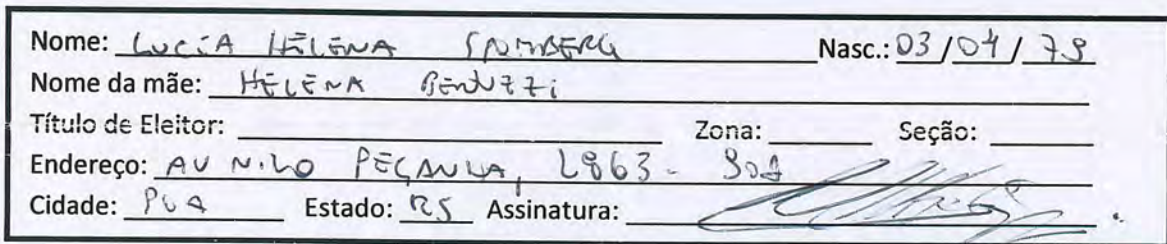 Nome: LUCIA HELENA Nasc.: 03/04/79
Nome da mãe: HELENA BENUZZI
Título de Eleitor: Zona: Seção:
Endereço: AV NILO PEÇANHA,
Cidade: POA Estado: RS Assinatura: